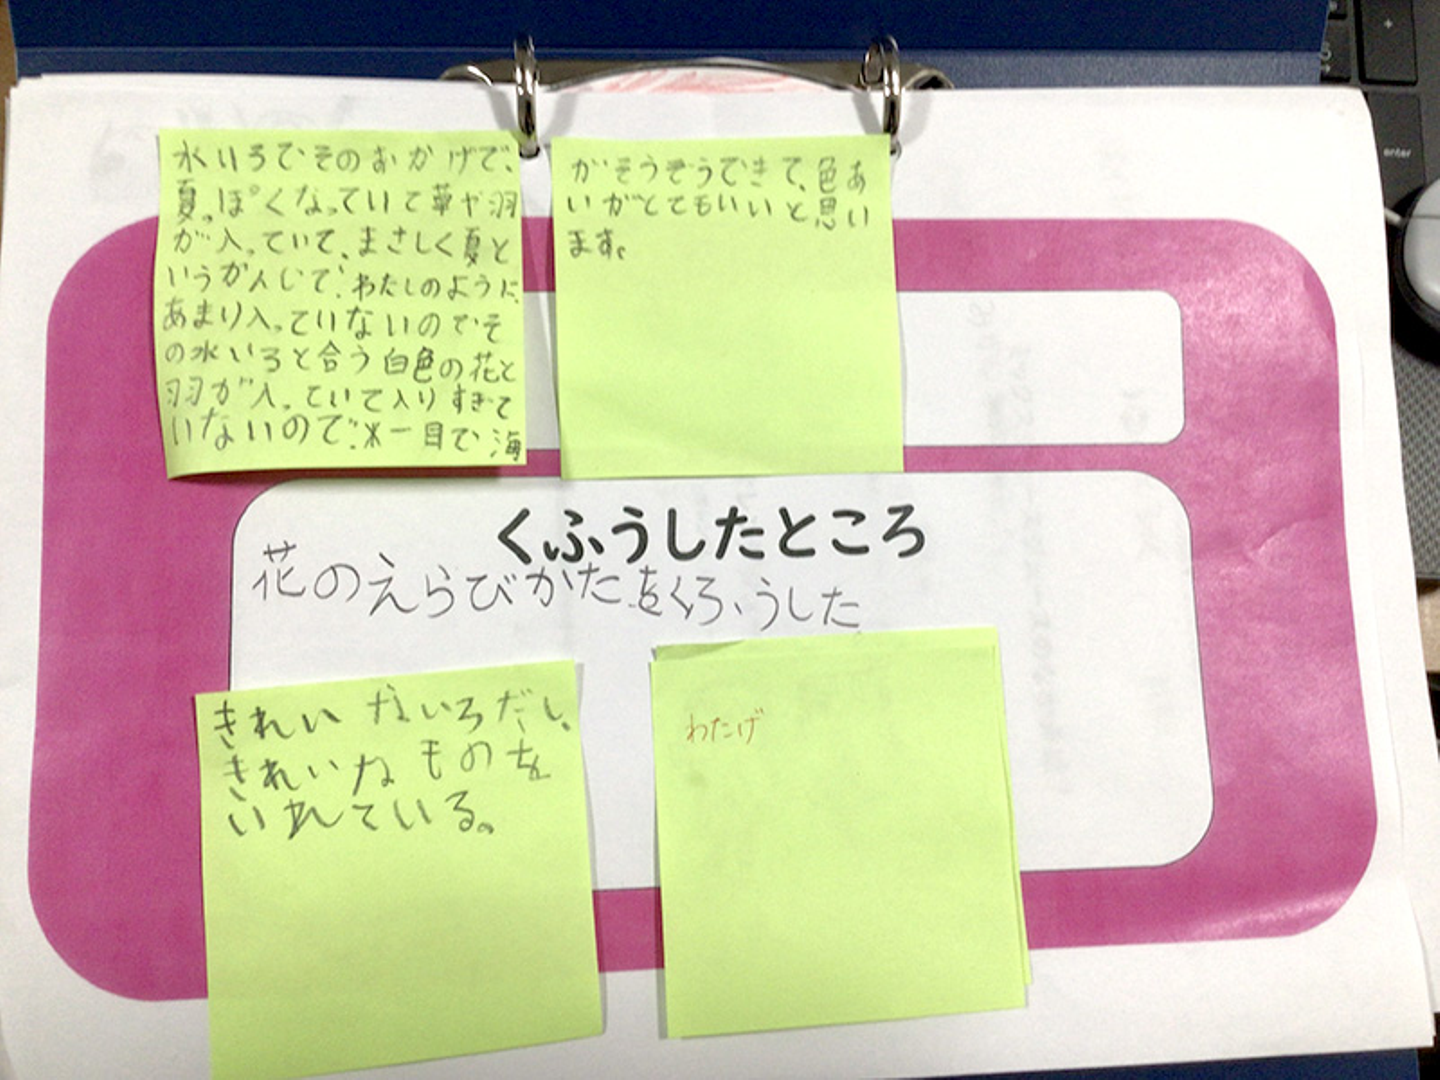 水いろでそのおかげで、
夏っぽくなっていて華や羽
が入っていて、まさしく夏と
いうかんじで、わたしのように
あまり入っていないのでそ
の水いろと合う白色の花と
羽が入っていて入りすぎて
いないので、一目で海
がそうぞうできて、色あ
いがとてもいいと思い
ます。
くふうしたところ
花のえらびかたをくふうした
きれいないろだし、
きれいなものを
いれている。
わたげ
enter